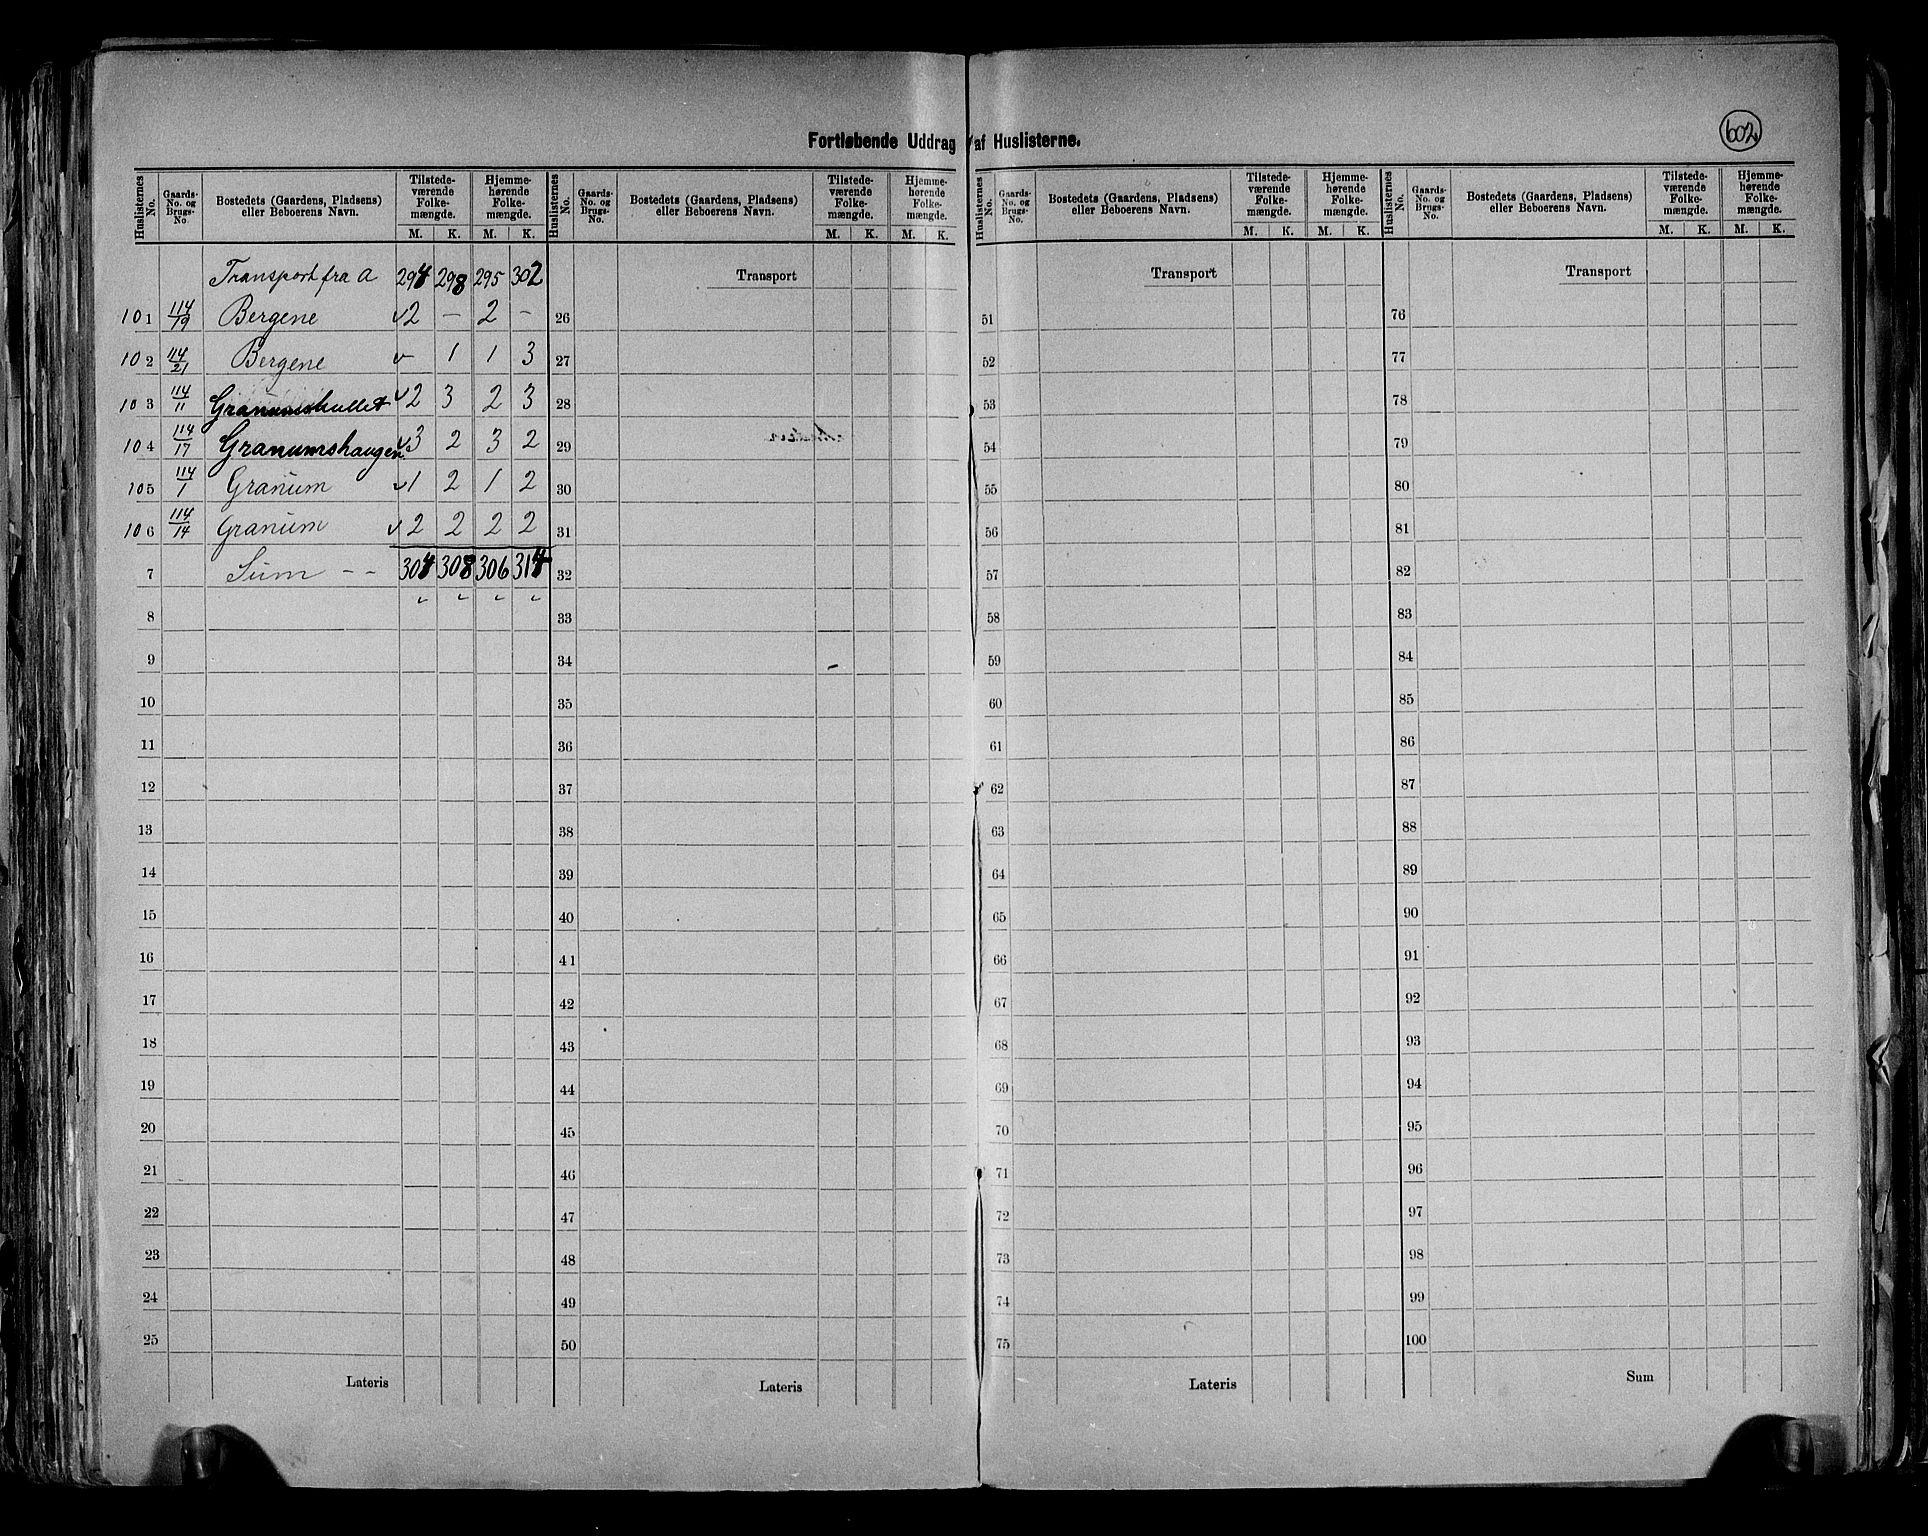 Fortløbende Uddrag af Huslisterne.
602
Huslisternes No. | Gaards-No. og Brugs-No. | Bostedets (Gaardens, Pladsens) eller Beboerens Navn. | Tilstedeværende Folkemængde. M. K. | Hjemmehørende Folkemængde. M. K.
Transport fra a 294 298 295 302
101 114/19 Bergene 2 – 2 –
102 114/21 Bergene – 1 1 3
103 114/11 Granumshullet 2 3 2 3
104 114/17 Granumshaugen 3 2 3 2
105 114/1 Granum 1 2 1 2
106 114/14 Granum 2 2 2 2
7 Sum -- 304 308 306 314
8
9
10
11
12
13
14
15
16
17
18
19
20
21
22
23
24
25
Lateris
Huslisternes No. | Gaards-No. og Brugs-No. | Bostedets (Gaardens, Pladsens) eller Beboerens Navn. | Tilstedeværende Folkemængde. M. K. | Hjemmehørende Folkemængde. M. K.
Transport
26
27
28
29
30
31
32
33
34
35
36
37
38
39
40
41
42
43
44
45
46
47
48
49
50
Lateris
Huslisternes No. | Gaards-No. og Brugs-No. | Bostedets (Gaardens, Pladsens) eller Beboerens Navn. | Tilstedeværende Folkemængde. M. K. | Hjemmehørende Folkemængde. M. K.
Transport
51
52
53
54
55
56
57
58
59
60
61
62
63
64
65
66
67
68
69
70
71
72
73
74
75
Lateris
Huslisternes No. | Gaards-No. og Brugs-No. | Bostedets (Gaardens, Pladsens) eller Beboerens Navn. | Tilstedeværende Folkemængde. M. K. | Hjemmehørende Folkemængde. M. K.
Transport
76
77
78
79
80
81
82
83
84
85
86
87
88
89
90
91
92
93
94
95
96
97
98
99
100
Sum